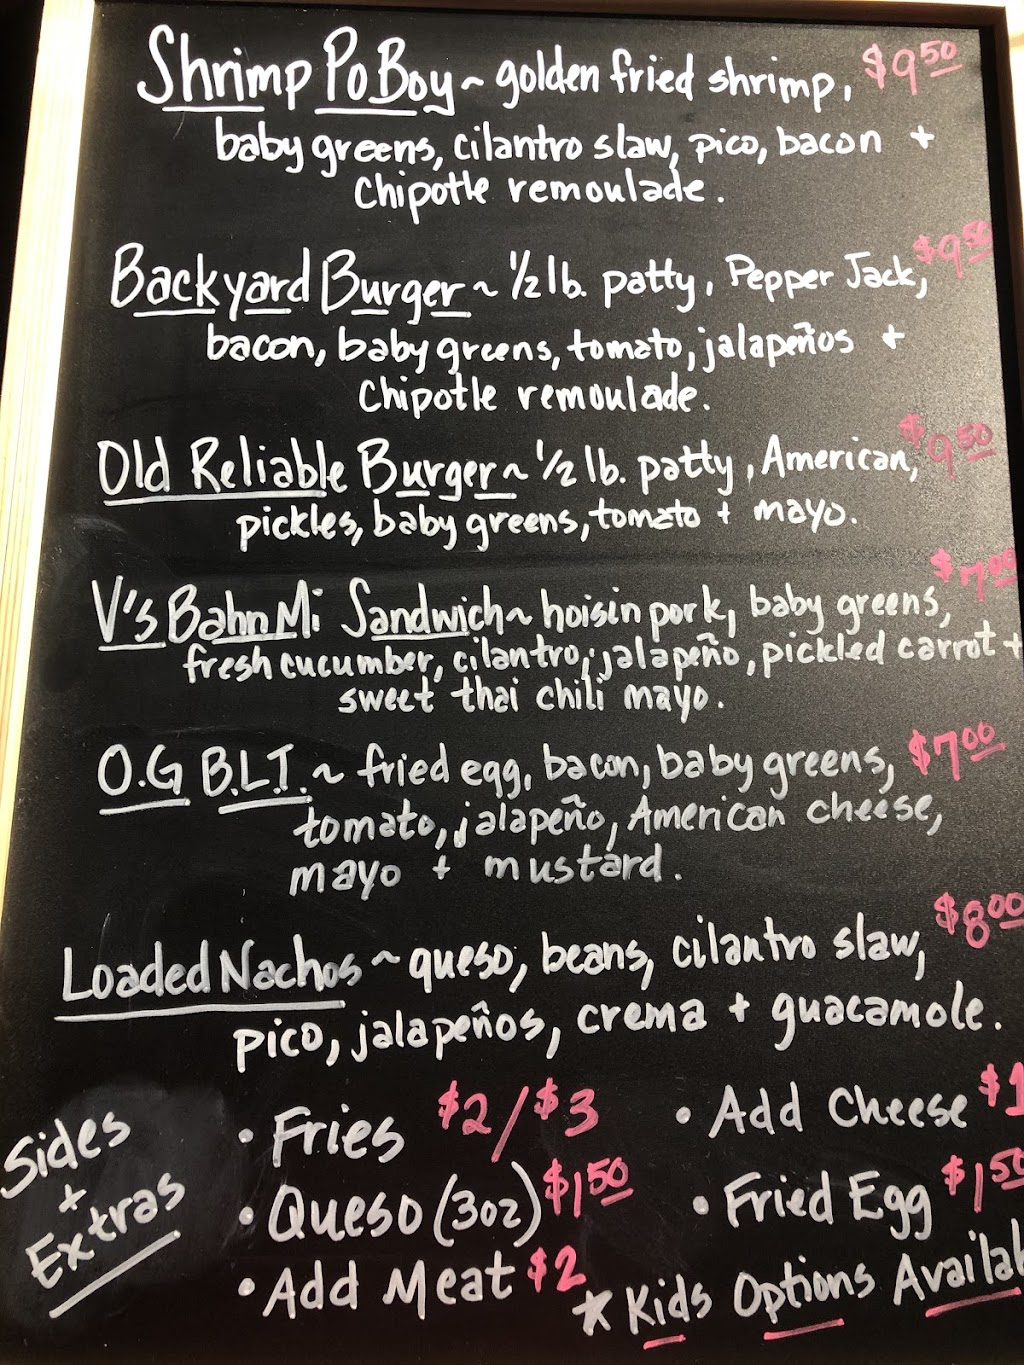 Shrimp Po Boy ~ golden fried shrimp, $9.50
baby greens, cilantro slaw, pico, bacon +
Chipotle remoulade.
Backyard Burger ~ 1/2 lb. patty, Pepper Jack, $9.50
bacon, baby greens, tomato, jalapeños +
Chipotle remoulade.
Old Reliable Burger ~ 1/2 lb. patty, American, $9.50
pickles, baby greens, tomato + mayo.
V's Bahn Mi Sandwich ~ hoisin pork, baby greens, $7.00
fresh cucumber, cilantro, jalapeño, pickled carrot +
sweet thai chili mayo.
O.G B.L.T. ~ fried egg, bacon, baby greens, $7.00
tomato, jalapeño, American cheese,
mayo + mustard.
Loaded Nachos ~ queso, beans, cilantro slaw, $8.00
pico, jalapeños, crema + guacamole.
Sides + Extras
• Fries $2/$3
• Queso (3oz) $1.50
• Add Meat $2
• Add Cheese $1
• Fried Egg $1.50
* Kids Options Availab